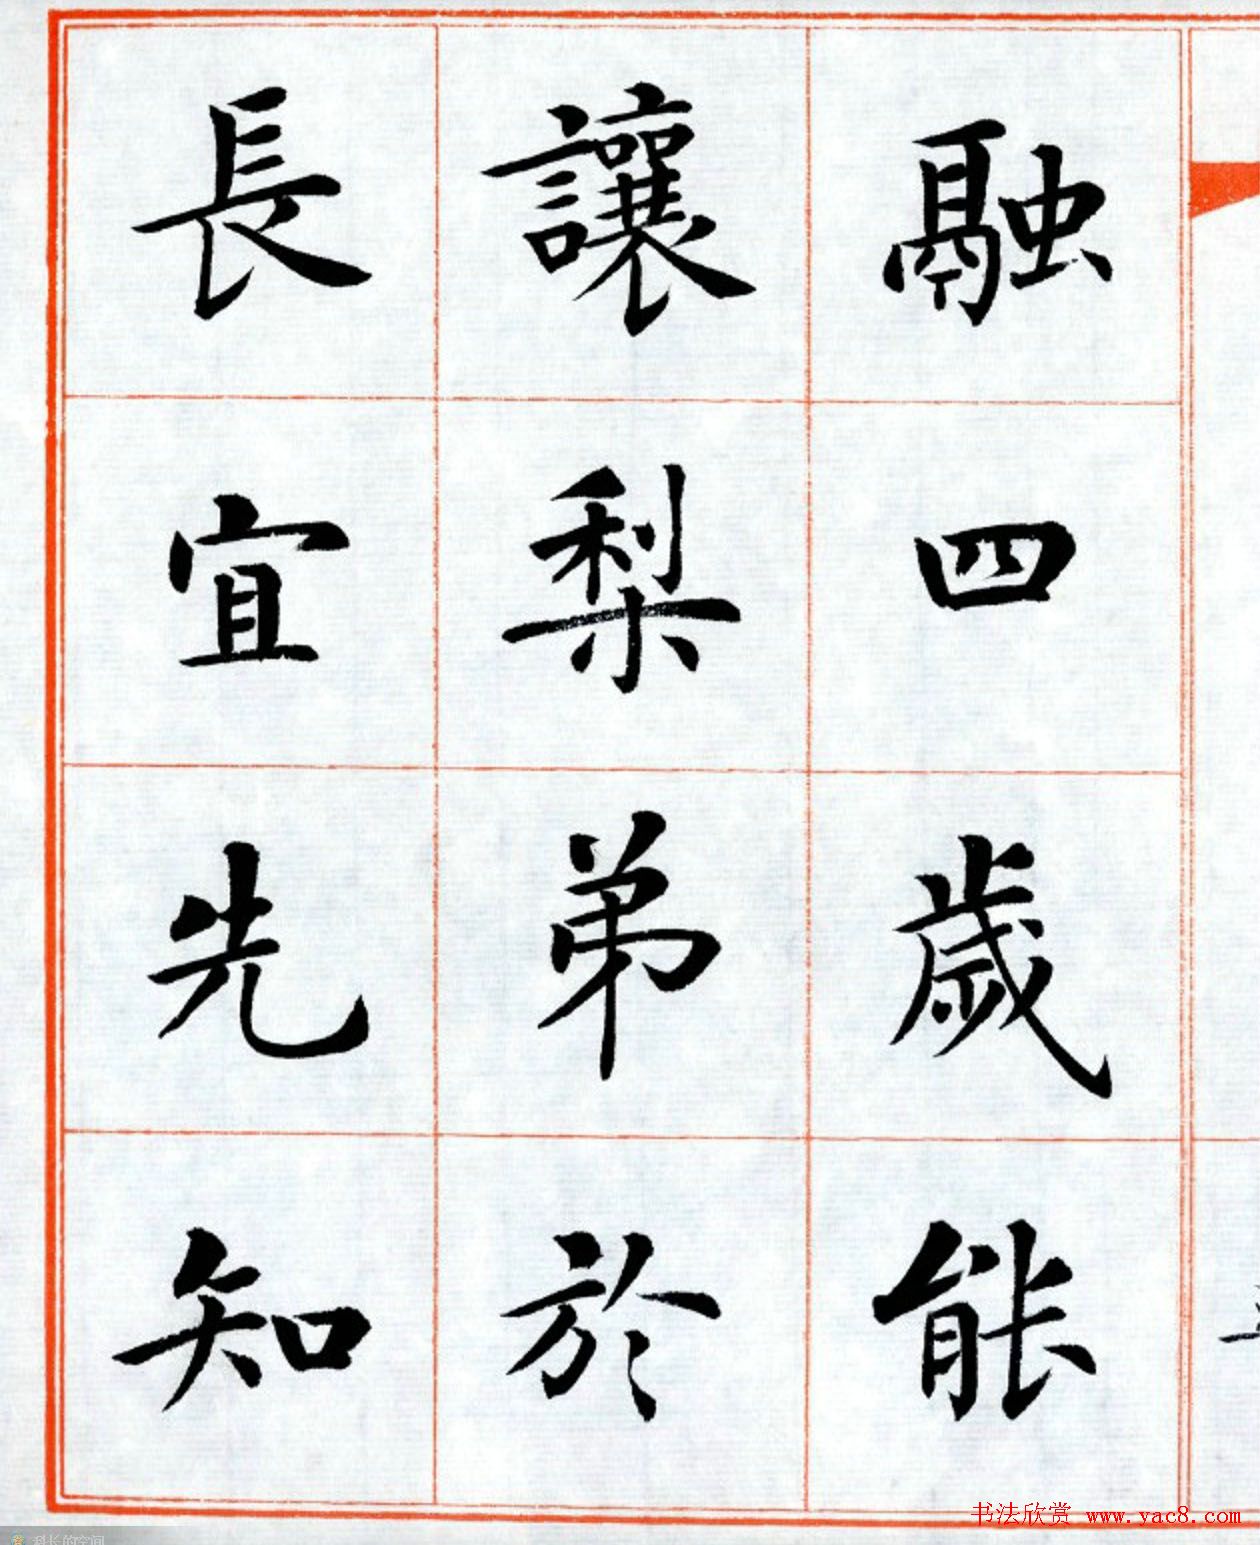 融四歲能
讓梨弟於
長宜先知
书法欣赏 www.yac8.com
科长的空间